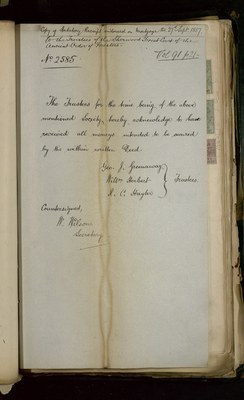 Copy of Statutory Receipt endorsed on Mortgage No. 29 Sept. 1887
to the Trustees of the Court of the
Ancient Order of Foresters.
No 2585
Vol. 91 p.
The Trustees for the time being of the above
mentioned Society, hereby acknowledge to have
received all moneys intended to be secured
by the within written Deed.
Geo. J. Greenway
Willm Herbert
Trustees
H. C.
Countersigned,
W. Wilson
Secretary